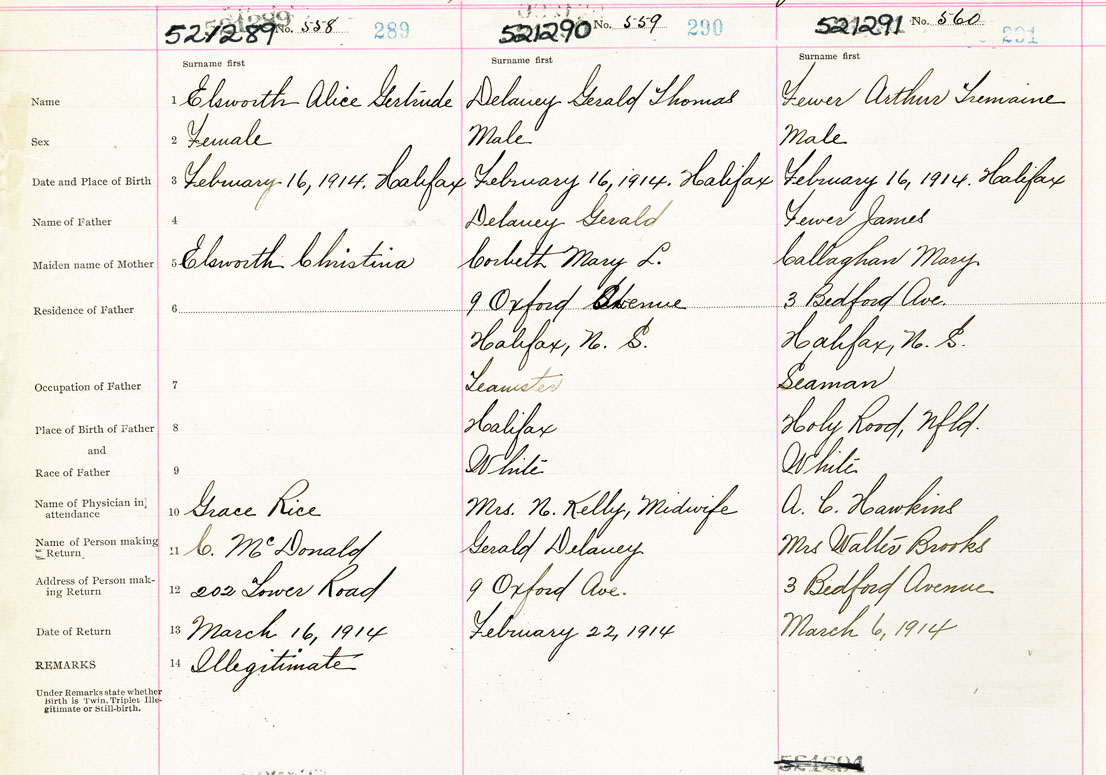 521289 No. 558 289
521290 No. 559 290
521291 No. 560 291
Surname first
Surname first
Surname first
Name 1 Elsworth Alice Gertrude Delaney Gerald Thomas Fewer Arthur Tremaine
Sex 2 Female Male Male
Date and Place of Birth 3 February 16, 1914. Halifax February 16, 1914. Halifax February 16, 1914. Halifax
Name of Father 4 Delaney Gerald Fewer James
Maiden name of Mother 5 Elsworth Christina Corbett Mary L. Callaghan Mary
Residence of Father 6 9 Oxford Avenue 3 Bedford Ave.
Halifax, N. S. Halifax, N. S.
Occupation of Father 7 Teamster Seaman
Place of Birth of Father 8 Halifax Holy Rood, Nfld.
and
Race of Father 9 White White
Name of Physician in attendance 10 Grace Rice Mrs. N. Kelly, Midwife A. C. Hawkins
Name of Person making Return 11 C. McDonald Gerald Delaney Mrs Walter Brooks
Address of Person mak-ing Return 12 202 Lower Road 9 Oxford Ave. 3 Bedford Avenue
Date of Return 13 March 16, 1914 February 22, 1914 March 6, 1914
REMARKS 14 Illegitimate
Under Remarks state whether
Birth is Twin, Triplet Ille-
gitimate or Still-birth.